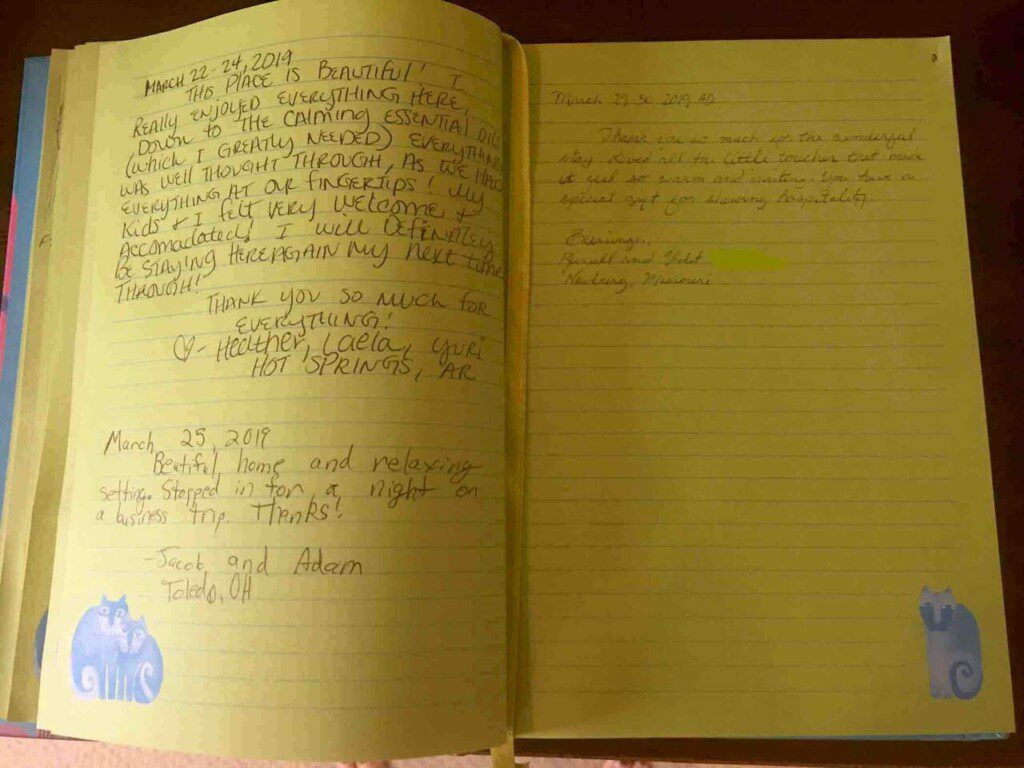 MARCH 22-24, 2019
THIS PLACE IS BEAUTIFUL! I
REALLY ENJOYED EVERYTHING HERE,
DOWN TO THE CALMING ESSENTIAL OILS
(WHICH I GREATLY NEEDED) EVERYTHING
WAS WELL THOUGHT THROUGH, AS WE HAD
EVERYTHING AT OUR FINGERTIPS! MY
KIDS & I FELT VERY WELCOME &
ACCOMADATED! I WILL DEFINATELY
BE STAYING HERE AGAIN MY NEXT TIME
THROUGH!
THANK YOU SO MUCH FOR
EVERYTHING!
♡- Heather, Laela, YURI
HOT SPRINGS, AR
March 25, 2019
Beatiful home and relaxing
setting. Stopped in for a night on
a business trip. Thanks!
-Jacob and Adam
Toledo, OH
March 29-30 2019 AD
Thank you so much for the wonderful
stay. Loved all the little touches that made
it feel so warm and inviting. You have a
special gift for showing hospitality.
Blessings,
Russell and Violet
Newburg, Missouri